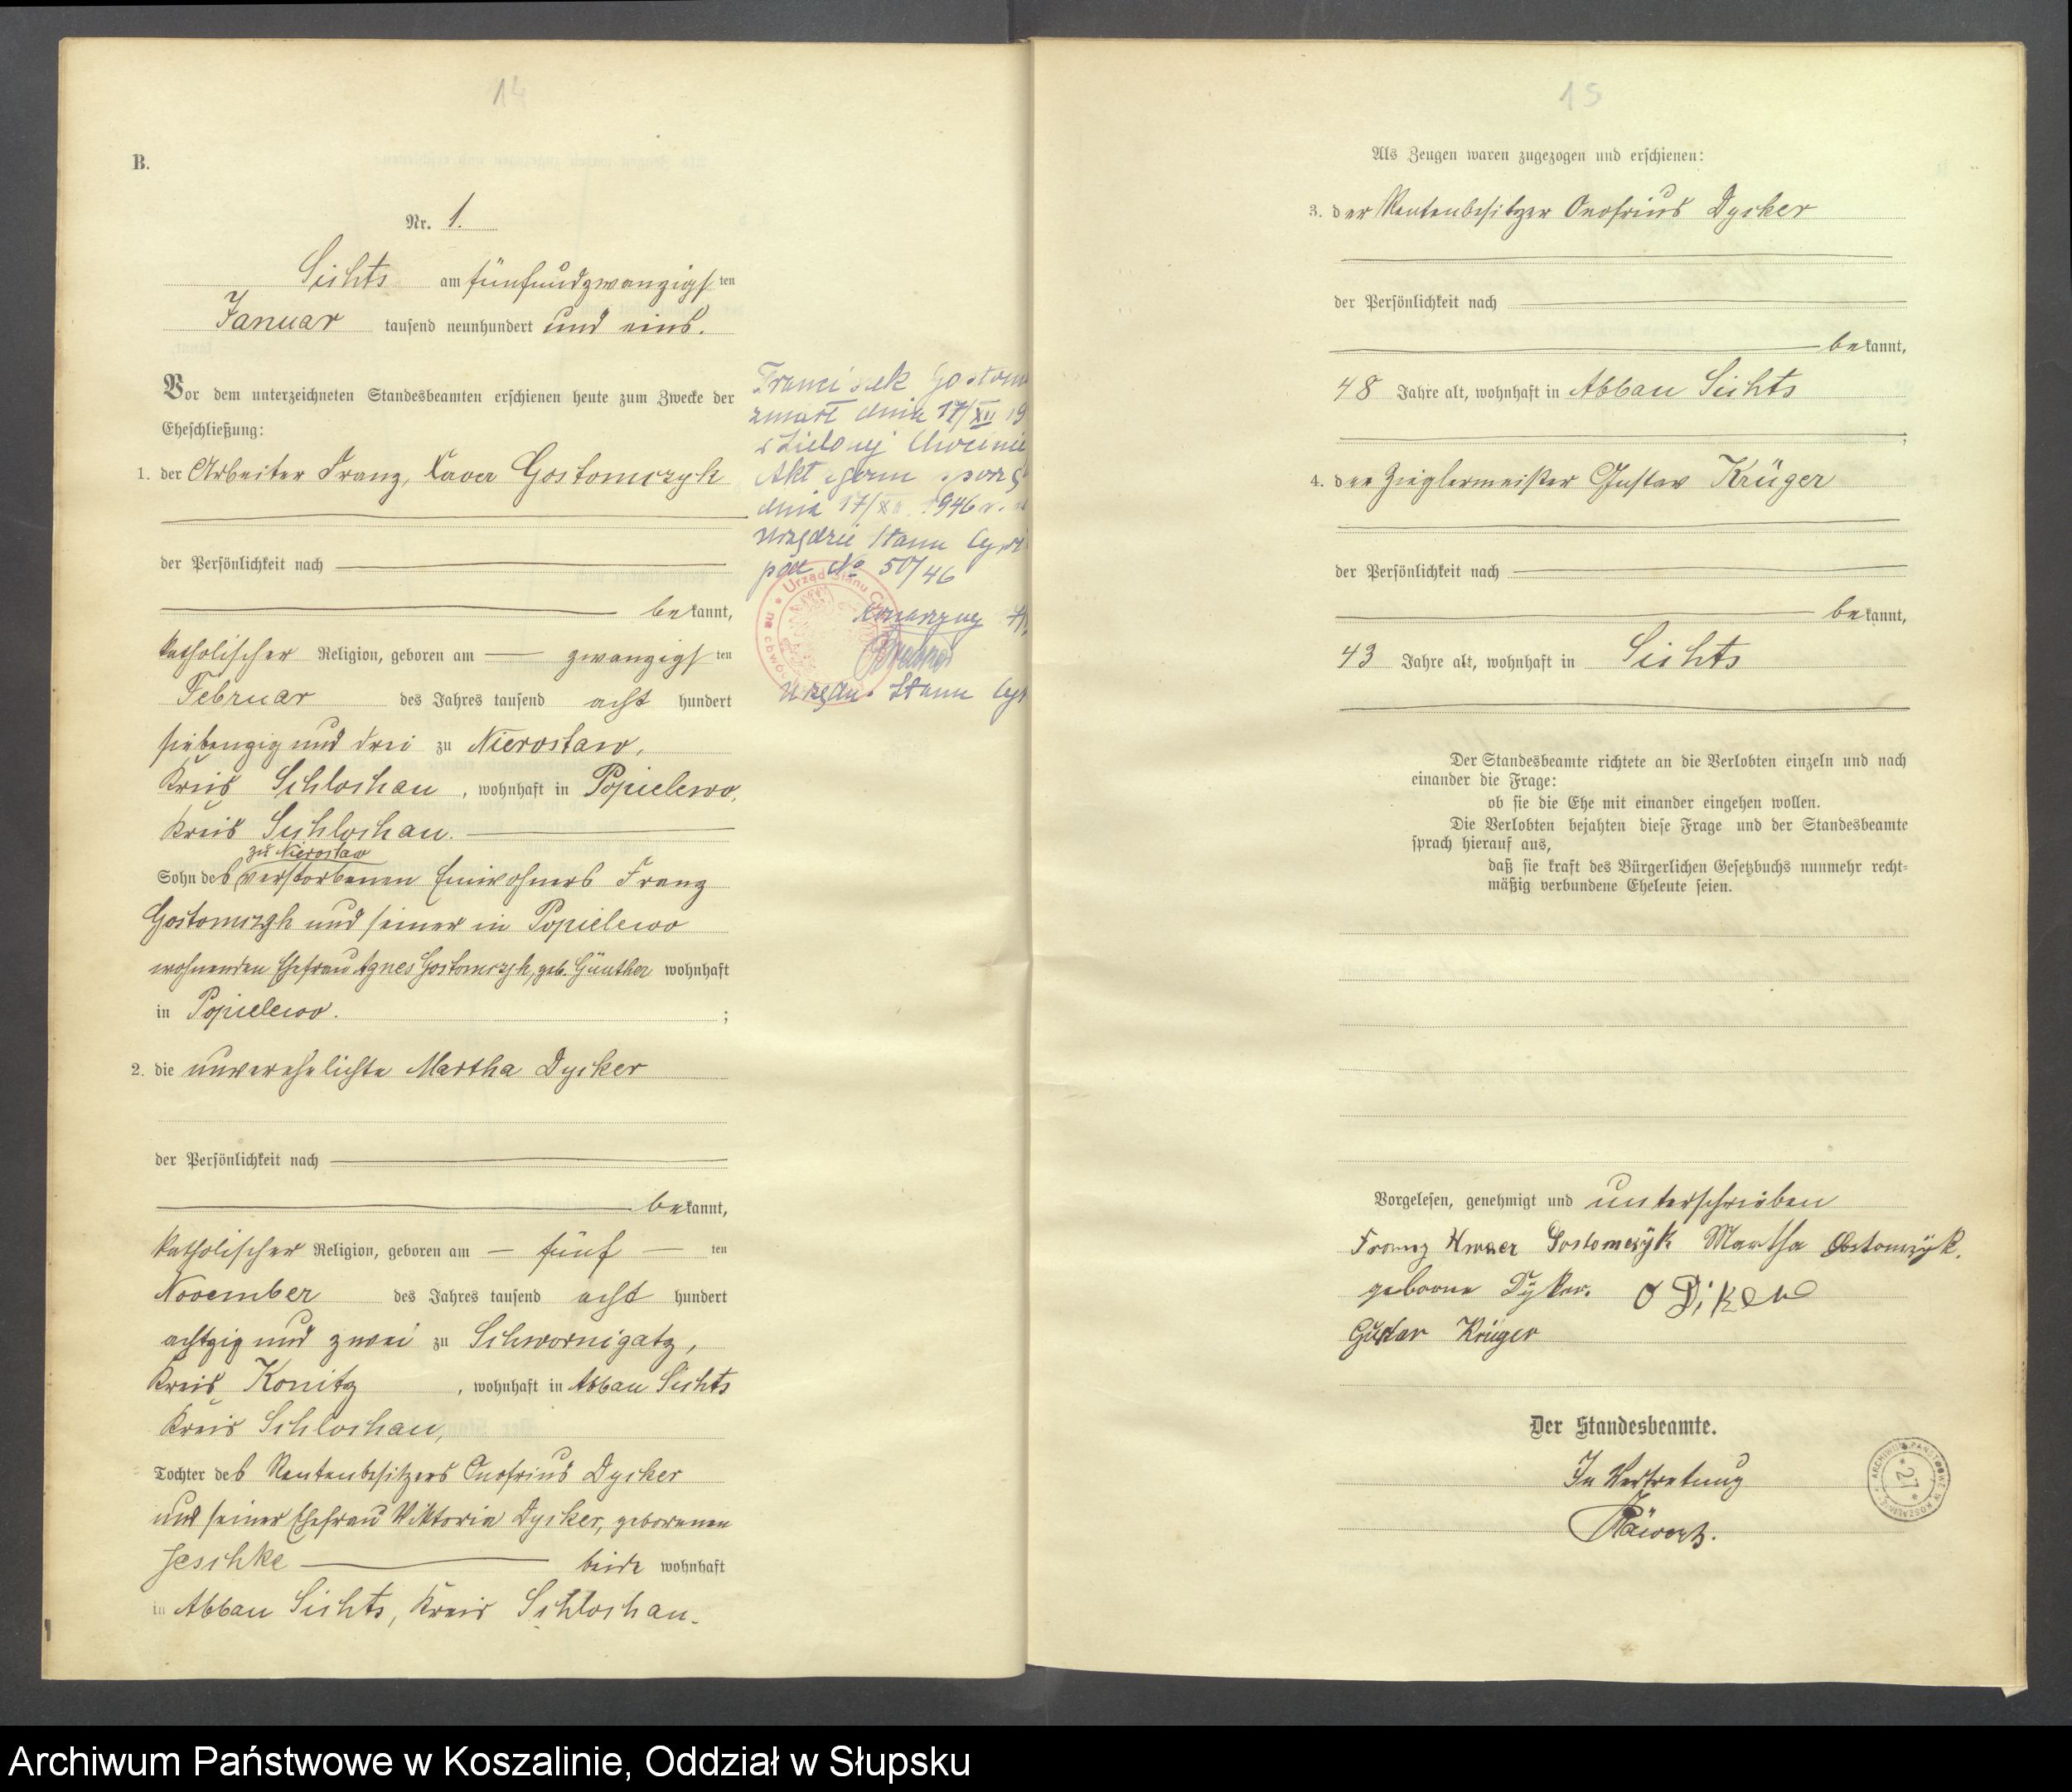 14
B.
Nr. 1.
Sichts am fünfundzwanzigsten
Januar tausend neunhundert und eins.
Vor dem unterzeichneten Standesbeamten erschienen heute zum Zwecke der
Eheschließung:
1. der Arbeiter Franz, Xaver Gostomczyk
der Persönlichkeit nach
bekannt,
katholischer Religion, geboren am zwanzigsten
Februar des Jahres tausend acht hundert
siebenzig und drei zu Nierostaw,
Kreis Schlochau, wohnhaft in Popielewo,
Kreis Schlochau.
zu Nierostaw
Sohn des verstorbenen Einwohners Franz
Gostomczyk und seiner in Popielewo
wohnenden Ehefrau Agnes Gostomczyk, geb. Günther wohnhaft
in Popielewo. ;
2. die unverehelichte Martha Dycker
der Persönlichkeit nach
bekannt,
katholischer Religion, geboren am fünf ten
November des Jahres tausend acht hundert
achtzig und zwei zu Schwornigatz,
Kreis Konitz, wohnhaft in Abbau Sichts
Kreis Schlochau,
Tochter des Rentenbesitzers Onofrius Dycker
und seiner Ehefrau Viktoria Dycker, geborenen
Jeschke beide wohnhaft
in Abbau Sichts, Kreis Schlochau.
Franciszek Gostom
zmarł dnia 17/XII 19
Akt zgonu sporz
dnia 17/XII 1946 r.
urzędzie Stanu Cywi
pod No 50/46
Urząd Stanu
Urzędn. Stanu Cyw
15
Als Zeugen waren zugezogen und erschienen:
3. der Rentenbesitzer Onofrius Dycker
der Persönlichkeit nach
bekannt,
48 Jahre alt, wohnhaft in Abbau Sichts
;
4. der Zieglermeister Gustav Krüger
der Persönlichkeit nach
bekannt,
43 Jahre alt, wohnhaft in Sichts
Der Standesbeamte richtete an die Verlobten einzeln und nach
einander die Frage:
ob sie die Ehe mit einander eingehen wollen.
Die Verlobten bejahten diese Frage und der Standesbeamte
sprach hierauf aus,
daß sie kraft des Bürgerlichen Gesetzbuchs nunmehr recht-
mäßig verbundene Eheleute seien.
Vorgelesen, genehmigt und unterschrieben
Franz Gostomczyk Martha Gostomzyk.
geborne Dyker. O Diker
Gustav Krüger
Der Standesbeamte.
In Vertretung
ARCHIWUM PAŃSTWOWE W KOSZALINIE
* 27 *
Archiwum Państwowe w Koszalinie, Oddział w Słupsku